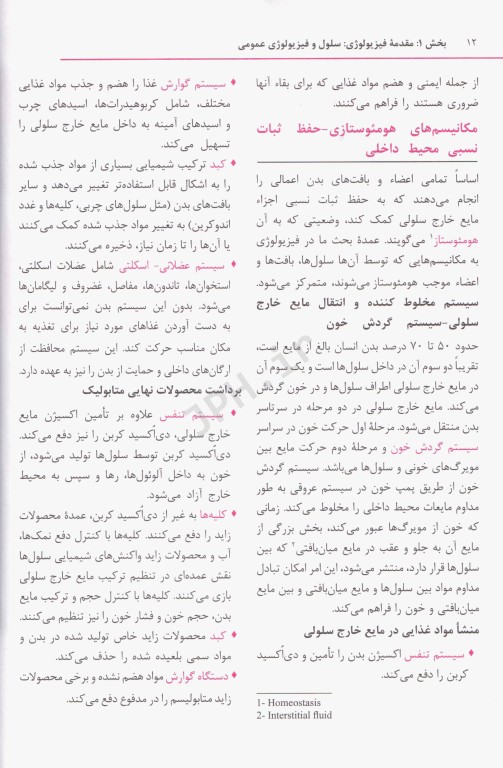 ۱۲ بخش ۱: مقدمهٔ فیزیولوژی: سلول و فیزیولوژی عمومی
از جمله ایمنی و هضم مواد غذایی که برای بقاء آنها
ضروری هستند را فراهم می‌کنند.
مکانیسم‌های هومئوستازی-حفظ ثبات
نسبی محیط داخلی
اساساً تمامی اعضاء و بافت‌های بدن اعمالی را
انجام می‌دهند که به حفظ ثبات نسبی اجزاء
مایع خارج سلولی کمک کند، وضعیتی که به آن
هومئوستاز۱ می‌گویند. عمدهٔ بحث ما در فیزیولوژی
به مکانیسم‌هایی که توسط آن‌ها سلول‌ها، بافت‌ها و
اعضاء موجب هومئوستاز می‌شوند، متمرکز می‌شود.
سیستم مخلوط کننده و انتقال مایع خارج
سلولی-سیستم گردش خون
حدود ۵۰ تا ۷۰ درصد بدن انسان بالغ از مایع است،
تقریباً دو سوم آن در داخل سلول‌ها است و یک سوم آن
در مایع خارج سلولی اطراف سلول‌ها و در خون گردش
می‌کند. مایع خارج سلولی در دو مرحله در سرتاسر
بدن منتقل می‌شود. مرحلهٔ اول حرکت خون در سراسر
سیستم گردش خون و مرحلهٔ دوم حرکت مایع بین
مویرگ‌های خونی و سلول‌ها می‌باشد. سیستم گردش
خون از طریق پمپ خون در سیستم عروقی به طور
مداوم مایعات محیط داخلی را مخلوط می‌کند. زمانی
که خون از مویرگ‌ها عبور می‌کند، بخش بزرگی از
مایع آن به جلو و عقب در مایع میان‌بافتی۲ که بین
سلول‌ها قرار دارد، منتشر می‌شود، این امر امکان تبادل
مداوم مواد بین سلول‌ها و مایع میان‌بافتی و بین مایع
میان‌بافتی و خون را فراهم می‌کند.
منشأ مواد غذایی در مایع خارج سلولی
♦ سیستم تنفس اکسیژن بدن را تأمین و دی‌اکسید
کربن را دفع می‌کند.
1- Homeostasis
2- Interstitial fluid
♦ سیستم گوارش غذا را هضم و جذب مواد غذایی
مختلف، شامل کربوهیدرات‌ها، اسیدهای چرب
و اسیدهای آمینه به داخل مایع خارج سلولی را
تسهیل می‌کند.
♦ کبد ترکیب شیمیایی بسیاری از مواد جذب شده
را به اشکال قابل استفاده‌تر تغییر می‌دهد و سایر
بافت‌های بدن (مثل سلول‌های چربی، کلیه‌ها و غدد
اندوکرین) به تغییر مواد جذب شده کمک می‌کنند
یا آن‌ها را تا زمان نیاز، ذخیره می‌کنند.
♦ سیستم عضلانی- اسکلتی شامل عضلات اسکلتی،
استخوان‌ها، تاندون‌ها، مفاصل، غضروف و لیگامان‌ها
می‌شود. بدون این سیستم بدن نمی‌توانست برای
به دست آوردن غذاهای مورد نیاز برای تغذیه به
مکان مناسب حرکت کند. این سیستم محافظت از
ارگان‌های داخلی و حمایت از بدن را نیز به عهده دارد.
برداشت محصولات نهایی متابولیک
♦ سیستم تنفس علاوه بر تأمین اکسیژن مایع
خارج سلولی، دی‌اکسید کربن را نیز دفع می‌کند.
دی‌اکسید کربن توسط سلول‌ها تولید می‌شود، از
خون به داخل آلوئول‌ها، رها و سپس به محیط
خارج آزاد می‌شود.
♦ کلیه‌ها به غیر از دی‌اکسید کربن، عمدهٔ محصولات
زاید را دفع می‌کنند. کلیه‌ها با کنترل دفع نمک‌ها،
آب و محصولات زاید واکنش‌های شیمیایی سلول‌ها
نقش عمده‌ای در تنظیم ترکیب مایع خارج سلولی
بازی می‌کنند. کلیه‌ها با کنترل حجم و ترکیب مایع
بدن، حجم خون و فشار خون را نیز تنظیم می‌کنند.
♦ کبد محصولات زاید خاص تولید شده در بدن و
مواد سمی بلعیده شده را حذف می‌کند.
♦ دستگاه گوارش مواد هضم نشده و برخی محصولات
زاید متابولیسم را در مدفوع دفع می‌کند.
JPH.ir